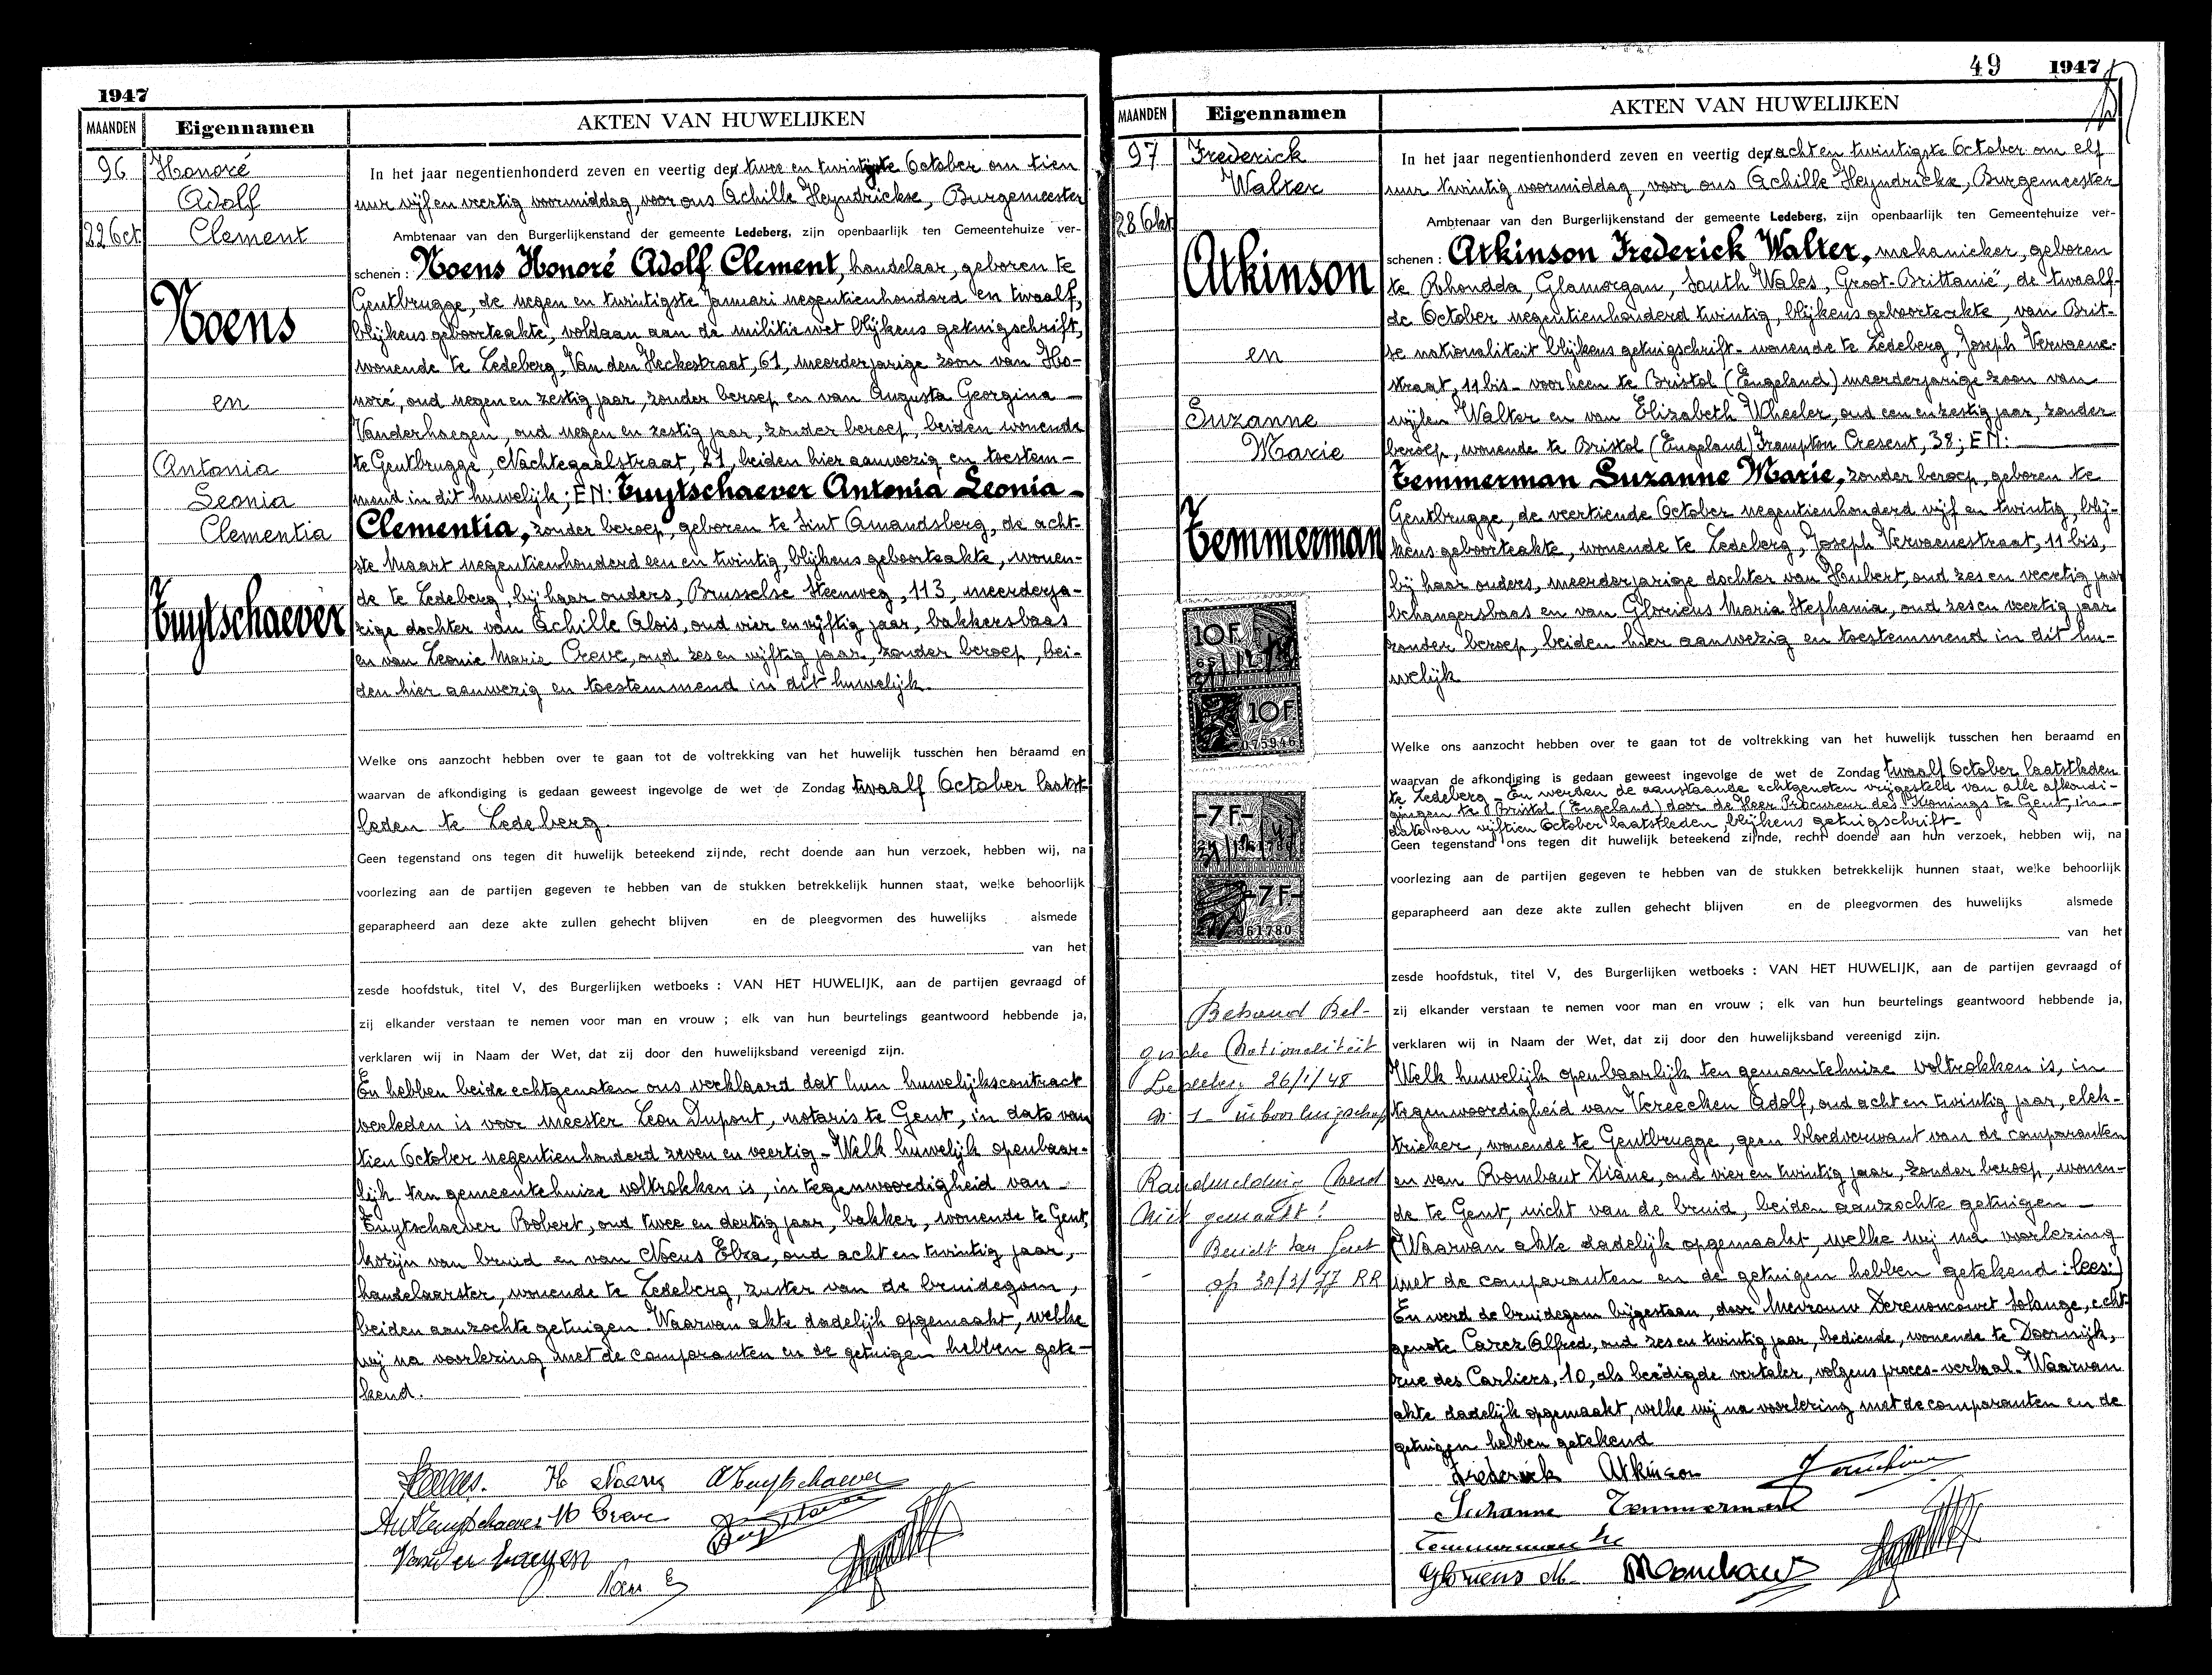 1947
MAANDEN
Eigennamen
AKTEN VAN HUWELIJKEN
96
22 Oct.
Honoré
Adolf
Clement
Noens
en
Antonia
Leonia
Clementia
Tuytschaever
In het jaar negentienhonderd zeven en veertig den twee en twintigste October om tien
uur vijf en veertig voormiddag, voor ons Achille Heyndrickx, Burgemeester
Ambtenaar van den Burgerlijkenstand der gemeente Ledeberg, zijn openbaarlijk ten Gemeentehuize ver-
schenen : Noens Honoré Adolf Clement, handelaar, geboren te
Gentbrugge, de negen en twintigste Januari negentienhonderd en twaalf,
blijkens geboorteakte, voldaan aan de militiewet blijkens getuigschrift,
wonende te Ledeberg, Van den Heckestraat, 61, meerderjarige zoon van Ho-
noré, oud negen en zestig jaar, zonder beroep en van Augusta Georgina
Vanderhaegen, oud negen en zestig jaar, zonder beroep, beiden wonende
te Gentbrugge, Nachtegaalstraat, 21, beiden hier aanwezig en toestem-
mend in dit huwelijk; EN: Tuytschaever Antonia Leonia
Clementia, zonder beroep, geboren te Sint Amandsberg, de acht-
ste Maart negentienhonderd een en twintig, blijkens geboorteakte, wonen-
de te Ledeberg, bij haar ouders, Brusselse Steenweg, 113, meerderja-
rige dochter van Achille Alois, oud vier en vijftig jaar, bakkersbaas
en van Leonie Marie Creve, oud zes en vijftig jaar, zonder beroep, bei-
den hier aanwezig en toestemmend in dit huwelijk.
Welke ons aanzocht hebben over te gaan tot de voltrekking van het huwelijk tusschen hen beraamd en
waarvan de afkondiging is gedaan geweest ingevolge de wet de Zondag twaalf October laatst-
leden te Ledeberg.
Geen tegenstand ons tegen dit huwelijk beteekend zijnde, recht doende aan hun verzoek, hebben wij, na
voorlezing aan de partijen gegeven te hebben van de stukken betrekkelijk hunnen staat, welke behoorlijk
geparapheerd aan deze akte zullen gehecht blijven en de pleegvormen des huwelijks alsmede
van het
zesde hoofdstuk, titel V, des Burgerlijken wetboeks : VAN HET HUWELIJK, aan de partijen gevraagd of
zij elkander verstaan te nemen voor man en vrouw ; elk van hun beurtelings geantwoord hebbende ja,
verklaren wij in Naam der Wet, dat zij door den huwelijksband vereenigd zijn.
En hebben beide echtgenoten ons verklaard dat hun huwelijkscontract
verleden is voor meester Leon Dupont, notaris te Gent, in dato van
tien October negentienhonderd zeven en veertig - Welk huwelijk openbaar-
lijk ten gemeentehuize voltrokken is, in tegenwoordigheid van
Tuytschaever Robert, oud twee en dertig jaar, bakker, wonende te Gent,
kozijn van bruid en van Noens Elza, oud acht en twintig jaar,
handelaarster, wonende te Ledeberg, zuster van de bruidegom,
beiden aanzochte getuigen. Waarvan akte dadelijk opgemaakt, welke
wij na voorlezing met de comparanten en de getuigen hebben gete-
kend.
H Noens A Tuytschaever
Ant Tuytschaever M Creve
Vanderhaegen
Noens E
49 1947
MAANDEN
Eigennamen
AKTEN VAN HUWELIJKEN
97
28 Okt
Frederick
Walter
Atkinson
en
Suzanne
Marie
Temmerman
10F
10F
075946
-7F-
-7F-
061780
Behoud Bel-
gische Nationaliteit
Ledeberg 26/1/48
nr 1
Randmelding
Niet gemaakt!
Bericht van Gent
op 30/3/77 RR
In het jaar negentienhonderd zeven en veertig den acht en twintigste October om elf
uur twintig voormiddag, voor ons Achille Heyndrickx, Burgemeester
Ambtenaar van den Burgerlijkenstand der gemeente Ledeberg, zijn openbaarlijk ten Gemeentehuize ver-
schenen : Atkinson Frederick Walter, mekanieker, geboren
te Rhondda, Glamorgan, South Wales, Groot-Brittanië, de twaalf-
de October negentienhonderd twintig, blijkens geboorteakte, van Brit-
se nationaliteit blijkens getuigschrift - wonende te Ledeberg, Joseph Vervaene-
straat, 11 bis - voorheen te Bristol (Engeland) meerderjarige zoon van
wijlen Walter en van Elizabeth Wheeler, oud een en zestig jaar, zonder
beroep, wonende te Bristol (Engeland) Frampton Cresent, 38; EN:
Temmerman Suzanne Marie, zonder beroep, geboren te
Gentbrugge, de veertiende October negentienhonderd vijf en twintig, blij-
kens geboorteakte, wonende te Ledeberg, Joseph Vervaenestraat, 11 bis,
bij haar ouders, meerderjarige dochter van Hubert, oud zes en veertig jaar
behangersbaas en van Glorieus Maria Stephania, oud zes en veertig jaar
zonder beroep, beiden hier aanwezig en toestemmend in dit hu-
welijk
Welke ons aanzocht hebben over te gaan tot de voltrekking van het huwelijk tusschen hen beraamd en
waarvan de afkondiging is gedaan geweest ingevolge de wet de Zondag twaalf October laatstleden
te Ledeberg - En werden de aanstaande echtgenoten vrijgesteld van alle afkondi-
gingen te Bristol (Engeland) door de Heer Procureur des Konings te Gent, in
dato van vijftien October laatstleden, blijkens getuigschrift -
Geen tegenstand ons tegen dit huwelijk beteekend zijnde, recht doende aan hun verzoek, hebben wij, na
voorlezing aan de partijen gegeven te hebben van de stukken betrekkelijk hunnen staat, welke behoorlijk
geparapheerd aan deze akte zullen gehecht blijven en de pleegvormen des huwelijks alsmede
van het
zesde hoofdstuk, titel V, des Burgerlijken wetboeks : VAN HET HUWELIJK, aan de partijen gevraagd of
zij elkander verstaan te nemen voor man en vrouw ; elk van hun beurtelings geantwoord hebbende ja,
verklaren wij in Naam der Wet, dat zij door den huwelijksband vereenigd zijn.
Welk huwelijk openbaarlijk ten gemeentehuize voltrokken is, in
tegenwoordigheid van Vereecken Adolf, oud acht en twintig jaar, elek-
trieker, wonende te Gentbrugge, geen bloedverwant van de comparanten
en van Rombaut Diane, oud vier en twintig jaar, zonder beroep, wonen-
de te Gent, nicht van de bruid, beiden aanzochte getuigen -
(Waarvan akte dadelijk opgemaakt, welke wij na voorlezing
met de comparanten en de getuigen hebben getekend : lees:)
En werd de bruidegom bijgestaan, door Mevrouw Derenoncourt Solange, echt-
genote Carez Alfred, oud zes en twintig jaar, bediende, wonende te Doornijk,
rue des Carliers, 10, als beëdigde vertaler, volgens proces-verbaal. Waarvan
akte dadelijk opgemaakt, welke wij na voorlezing met de comparanten en de
getuigen hebben getekend
Frederick Atkinson
Suzanne Temmerman
Temmerman
Glorieus M. Rombaut